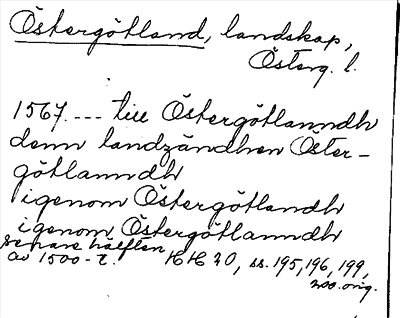 Östergötland, landskap,
Österg. l.
1567. --- till Östergötlanndh
denn landzändhen Öster-
götlanndh
igenom Östergötlandh
igenom Östergötlanndh
senare hälften
av 1500-t. HH 20, ss. 195, 196, 199,
200. orig.